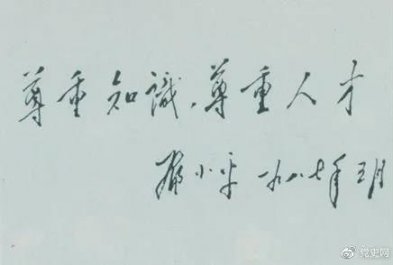 尊重知識，尊重人才
邓小平 一九八七年三月
党史网